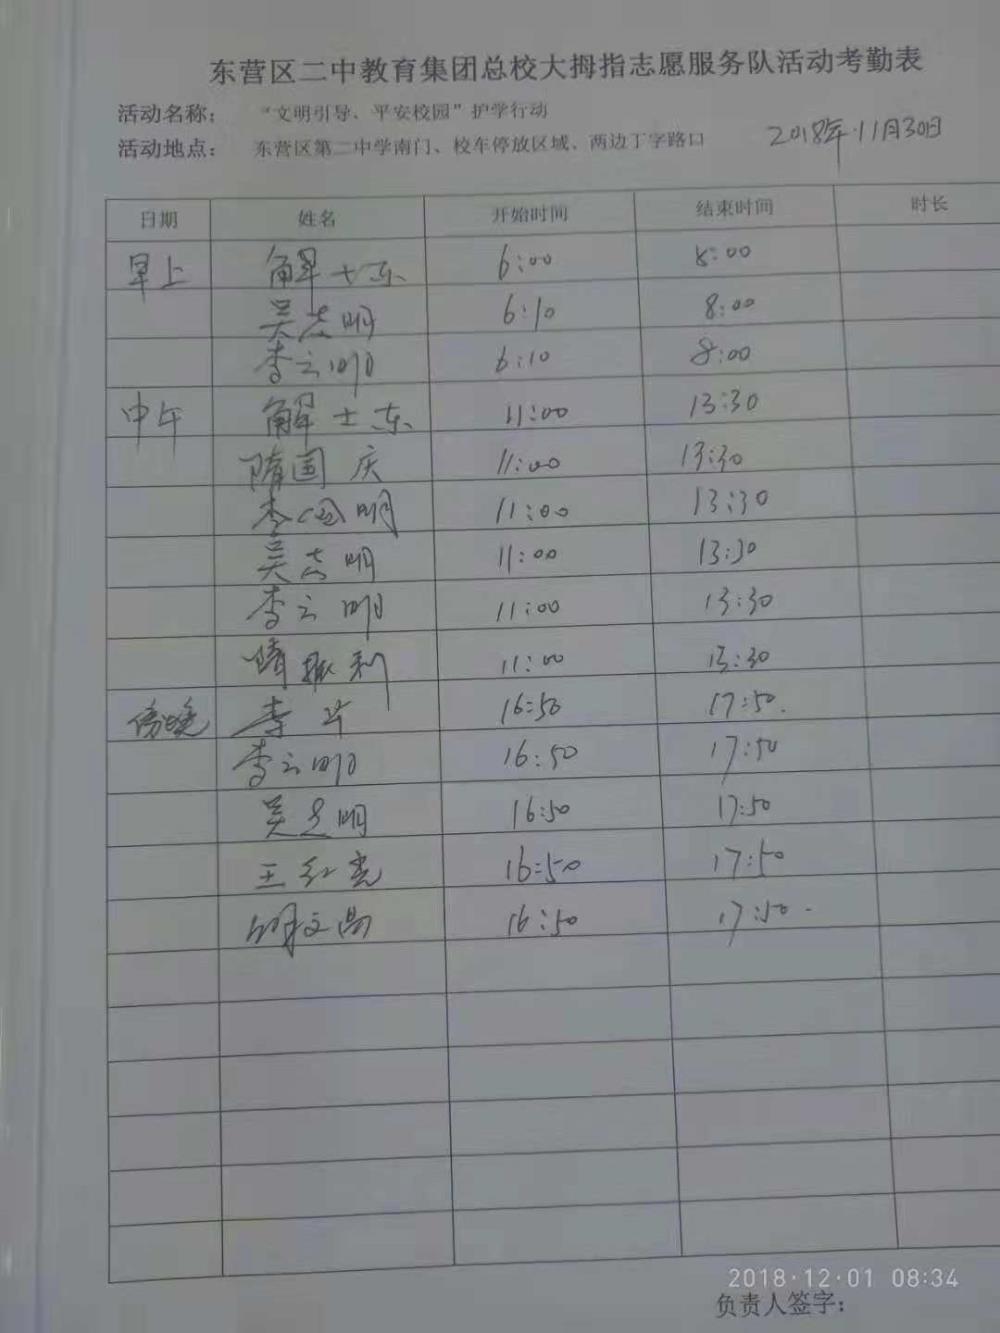 东营区二中教育集团总校大拇指志愿服务队活动考勤表
活动名称： “文明引导、平安校园”护学行动
活动地点： 东营区第二中学南门、校车停放区域、两边丁字路口 2018年11月30日
日期 姓名 开始时间 结束时间 时长
早上 解士东 6:00 8:00
吴志明 6:10 8:00
李云明 6:10 8:00
中午 解士东 11:00 13:30
隋国庆 11:00 13:30
李国明 11:00 13:30
吴志明 11:00 13:30
李云明 11:00 13:30
隋振利 11:00 13:30
傍晚 李 16:50 17:50.
李云明 16:50 17:50
吴志明 16:50 17:50
王红亮 16:50 17:50
文 16:50 17:50.
2018·12·01 08:34
负责人签字：